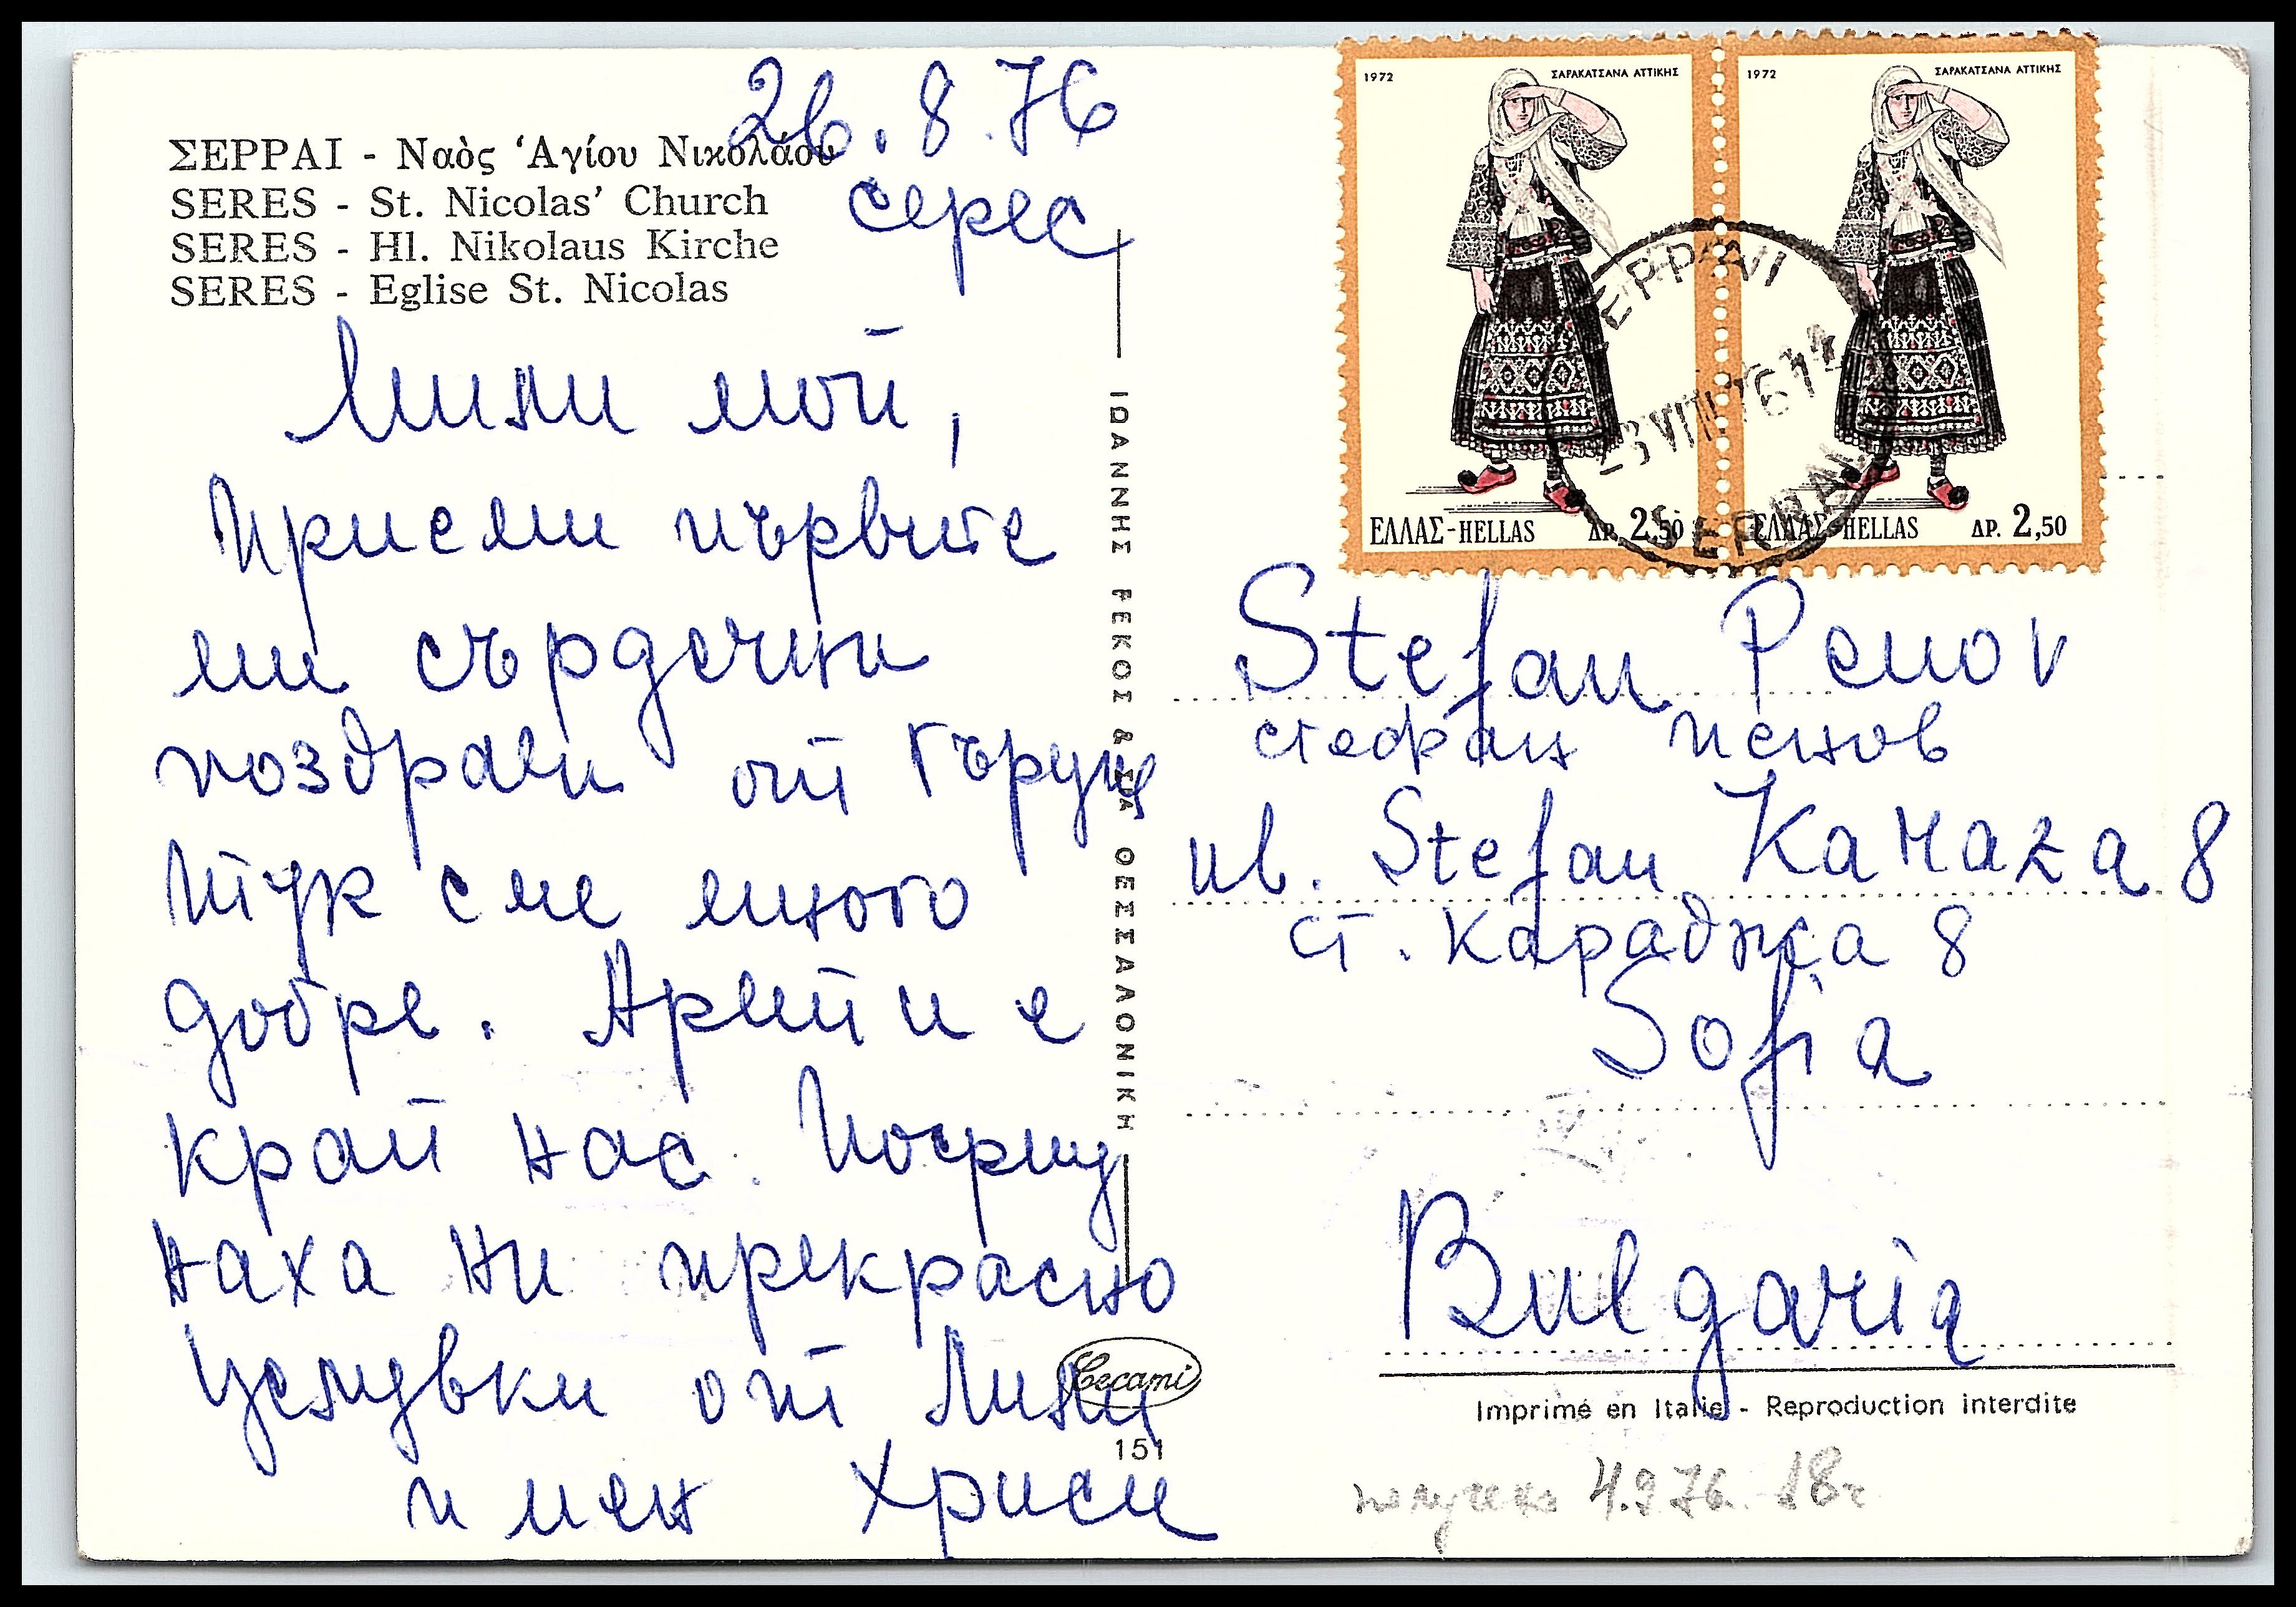 26.8.76
Серес
ΣΕΡΡΑΙ - Ναὸς ʽΑγίου Νικολάου
SERES - St. Nicolas' Church
SERES - Hl. Nikolaus Kirche
SERES - Eglise St. Nicolas
Мили мой,
Приеми първите
ми сърдечни
поздрави от Гърция
Тук сме много
добре. Арети е
край нас. Посрещ
наха ни прекрасно
Целувки от Лили
и мен Хриси
ΙΩΑΝΝΗΣ ΡΕΚΟΣ & ΣΙΑ ΘΕΣΣΑΛΟΝΙΚΗ
Cecami
151
1972 ΣΑΡΑΚΑΤΣΑΝΑ ΑΤΤΙΚΗΣ
ΕΛΛΑΣ-HELLAS ΔΡ. 2,50
1972 ΣΑΡΑΚΑΤΣΑΝΑ ΑΤΤΙΚΗΣ
ΕΛΛΑΣ-HELLAS ΔΡ. 2,50
SERRAI
Stefan Penov
Стефан Пенов
ul. Stefan 8
Ст. Караджа 8
Sofia
Bulgaria
Imprimé en Italie - Reproduction interdite
получено 4.9.76. 18ч